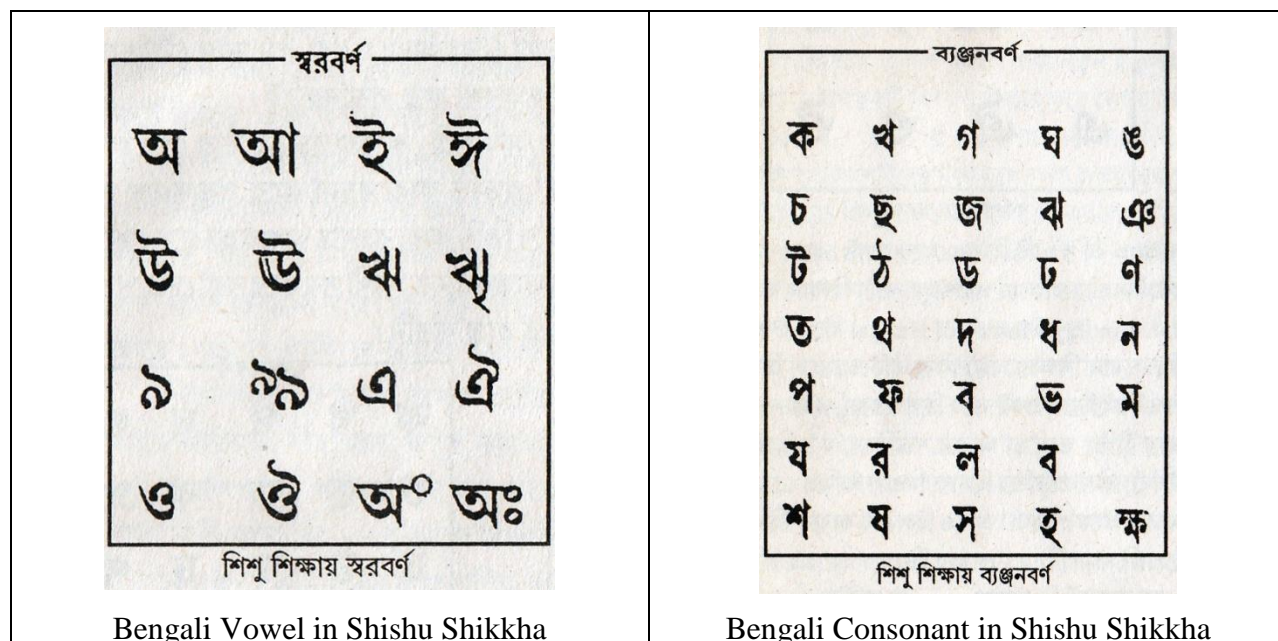 স্বরবর্ণ
অ আ ই ঈ
উ ঊ ঋ ৠ
ঌ ৡ এ ঐ
ও ঔ অং অঃ
শিশু শিক্ষায় স্বরবর্ণ
Bengali Vowel in Shishu Shikkha
ব্যঞ্জনবর্ণ
ক খ গ ঘ ঙ
চ ছ জ ঝ ঞ
ট ঠ ড ঢ ণ
ত থ দ ধ ন
প ফ ব ভ ম
য র ল ব
শ ষ স হ ক্ষ
শিশু শিক্ষায় ব্যঞ্জনবর্ণ
Bengali Consonant in Shishu Shikkha